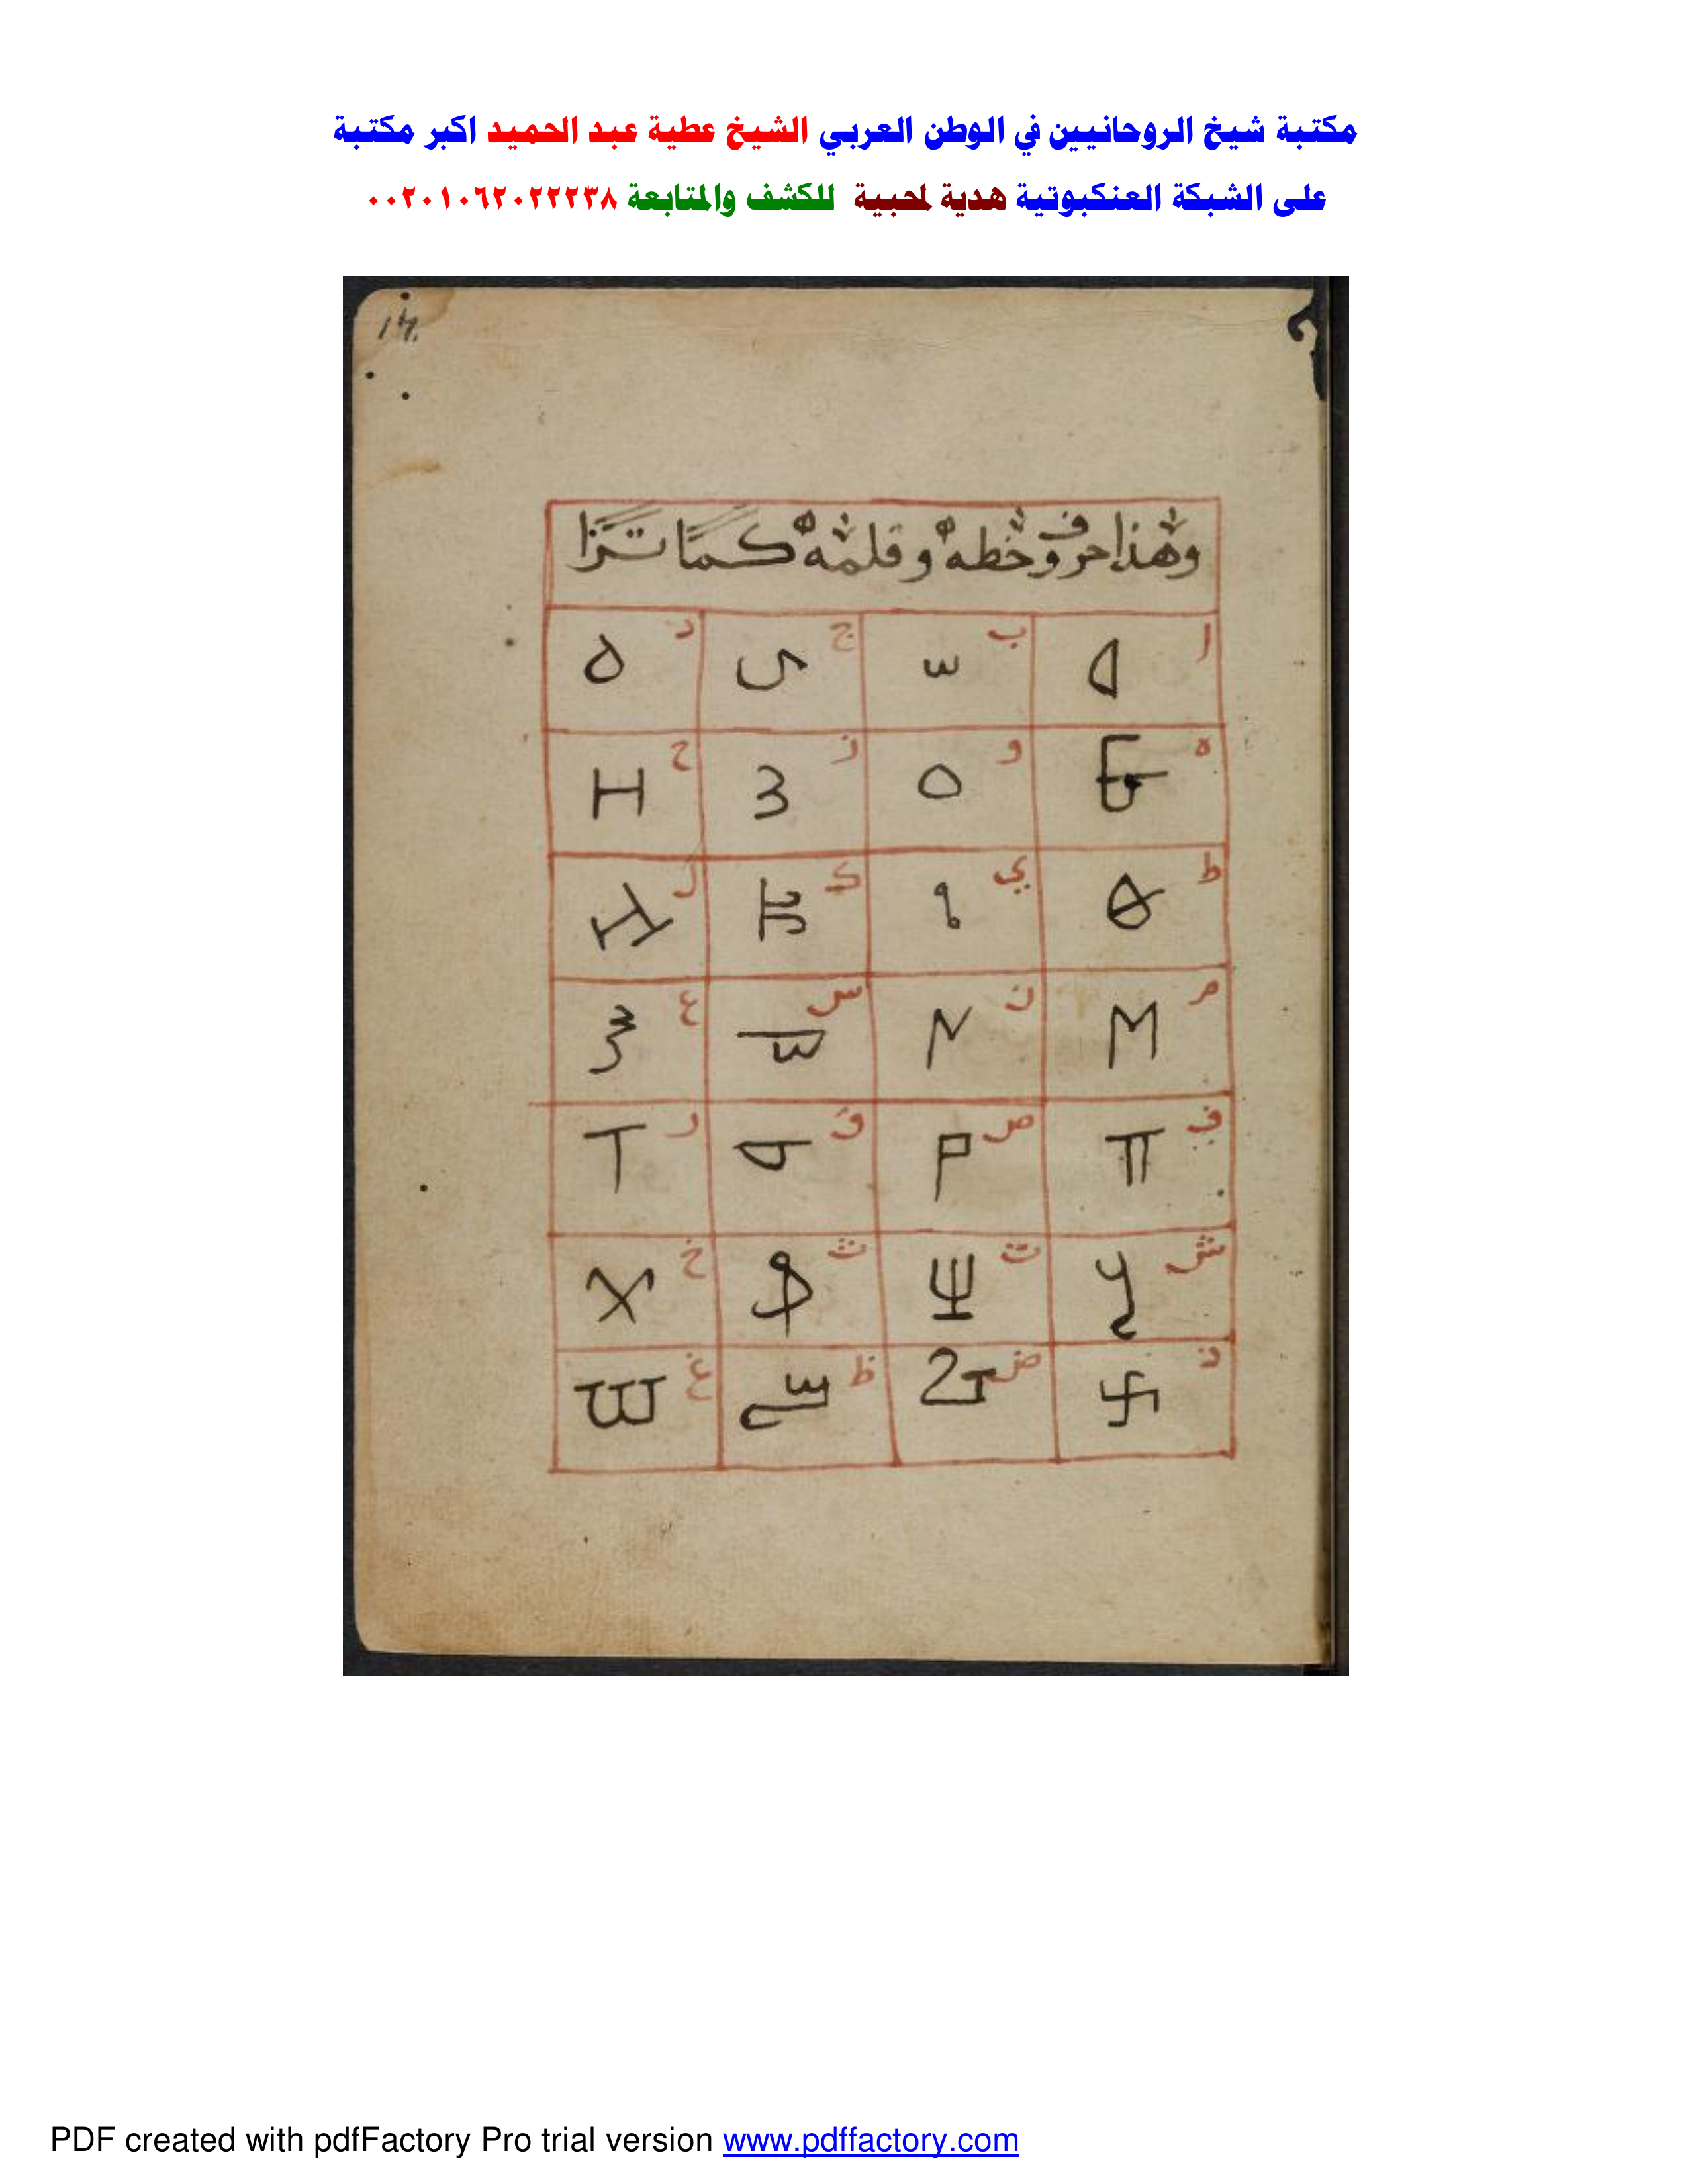 مكتبة شيخ الروحانيين في الوطن العربي الشيخ عطية عبد الحميد اكبر مكتبة
على الشبكة العنكبوتية هدية لمحبية للكشف والمتابعة ٠٠٢٠١٠٦٢٠٢٢٢٣٨
وهذا حروف خطه وقلمه كما ترا
ا ب ج د
ه و ز ح
ط ي ك ل
م ن س ع
ف ص ق ر
ش ت ث خ
ذ ض ظ غ
PDF created with pdfFactory Pro trial version www.pdffactory.com